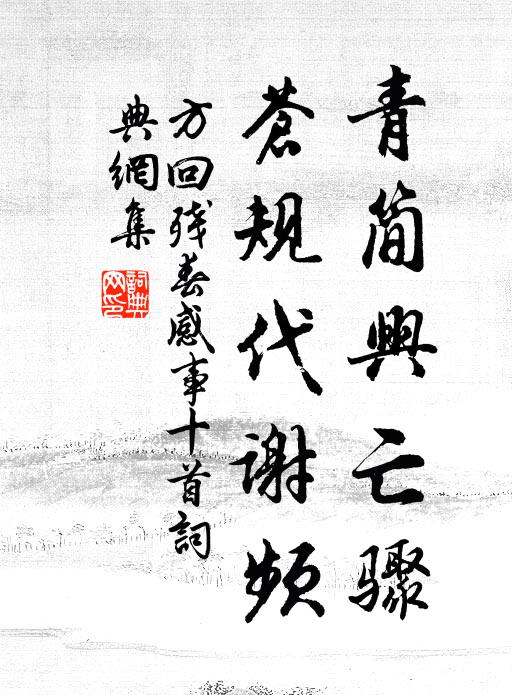 青简兴亡骤
苍规代谢频
方回残春感事十首词
典網集
詞典
网印